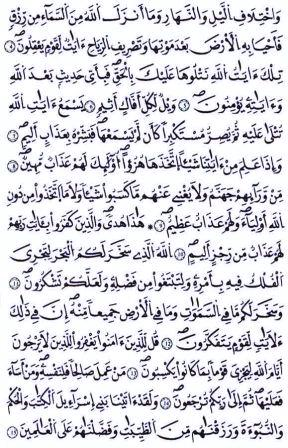 وَاخْتِلَافِ الَّيْلِ وَالنَّهَارِ وَمَا أَنزَلَ اللَّهُ مِنَ السَّمَاءِ مِن رِّزْقٍ
فَأَحْيَا بِهِ الْأَرْضَ بَعْدَ مَوْتِهَا وَتَصْرِيفِ الرِّيَاحِ ءَايَاتٌ لِّقَوْمٍ يَعْقِلُونَ ٥
تِلْكَ ءَايَاتُ اللَّهِ نَتْلُوهَا عَلَيْكَ بِالْحَقِّ فَبِأَيِّ حَدِيثٍ بَعْدَ اللَّهِ
وَءَايَاتِهِ يُؤْمِنُونَ ٦ وَيْلٌ لِّكُلِّ أَفَّاكٍ أَثِيمٍ ٧ يَسْمَعُ ءَايَاتِ اللَّهِ
تُتْلَى عَلَيْهِ ثُمَّ يُصِرُّ مُسْتَكْبِرًا كَأَن لَّمْ يَسْمَعْهَا فَبَشِّرْهُ بِعَذَابٍ أَلِيمٍ ٨
وَإِذَا عَلِمَ مِنْ ءَايَاتِنَا شَيْئًا اتَّخَذَهَا هُزُوًا أُوْلَئِكَ لَهُمْ عَذَابٌ مُّهِينٌ ٩
مِّن وَرَائِهِمْ جَهَنَّمُ وَلَا يُغْنِي عَنْهُم مَّا كَسَبُوا شَيْئًا وَلَا مَا اتَّخَذُوا مِن دُونِ
اللَّهِ أَوْلِيَاءَ وَلَهُمْ عَذَابٌ عَظِيمٌ ١٠ هَذَا هُدًى وَالَّذِينَ كَفَرُوا بِآيَاتِ رَبِّهِمْ
لَهُمْ عَذَابٌ مِّن رِّجْزٍ أَلِيمٌ ١١ اللَّهُ الَّذِي سَخَّرَ لَكُمُ الْبَحْرَ لِتَجْرِيَ
الْفُلْكُ فِيهِ بِأَمْرِهِ وَلِتَبْتَغُوا مِن فَضْلِهِ وَلَعَلَّكُمْ تَشْكُرُونَ ١٢
وَسَخَّرَ لَكُم مَّا فِي السَّمَاوَاتِ وَمَا فِي الْأَرْضِ جَمِيعًا مِّنْهُ إِنَّ فِي ذَلِكَ
لَآيَاتٍ لِّقَوْمٍ يَتَفَكَّرُونَ ١٣ قُل لِّلَّذِينَ ءَامَنُوا يَغْفِرُوا لِلَّذِينَ لَا يَرْجُونَ
أَيَّامَ اللَّهِ لِيَجْزِيَ قَوْمًا بِمَا كَانُوا يَكْسِبُونَ ١٤ مَنْ عَمِلَ صَالِحًا فَلِنَفْسِهِ وَمَنْ أَسَاءَ
فَعَلَيْهَا ثُمَّ إِلَى رَبِّكُمْ تُرْجَعُونَ ١٥ وَلَقَدْ ءَاتَيْنَا بَنِي إِسْرَاءِيلَ الْكِتَابَ وَالْحُكْمَ
وَالنُّبُوَّةَ وَرَزَقْنَاهُم مِّنَ الطَّيِّبَاتِ وَفَضَّلْنَاهُمْ عَلَى الْعَالَمِينَ ١٦